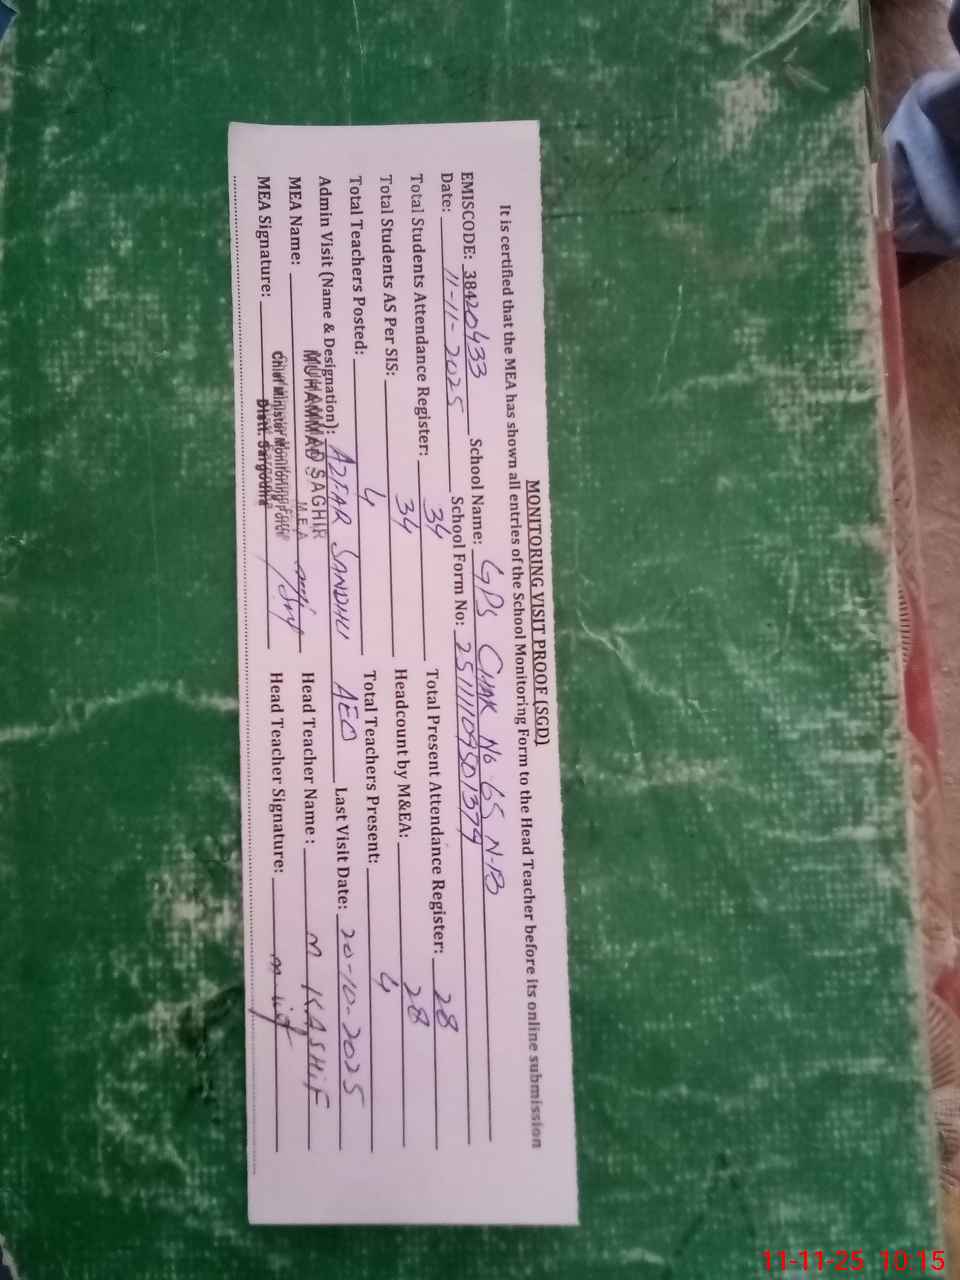 MONITORING VISIT PROOF (SGD)
It is certified that the MEA has shown all entries of the School Monitoring Form to the Head Teacher before its online submission
EMISCODE: 38420433 School Name: GPS CHAK No 65 N-B
Date: 11-11-2025 School Form No: 25111109501379
Total Students Attendance Register: 34 Total Present Attendance Register: 28
Total Students AS Per SIS: 34 Headcount by M&EA: 28
Total Teachers Posted: 4 Total Teachers Present: 4
Admin Visit (Name & Designation): AZFAR SANDHU AEO Last Visit Date: 20-10-2025
MEA Name: MUHAMMAD SAGHIR Head Teacher Name : M KASHIF
M.E.A
MEA Signature: Chief Minister Monitoring Force Head Teacher Signature:
Distt. Sargodha
11-11-25 10:15